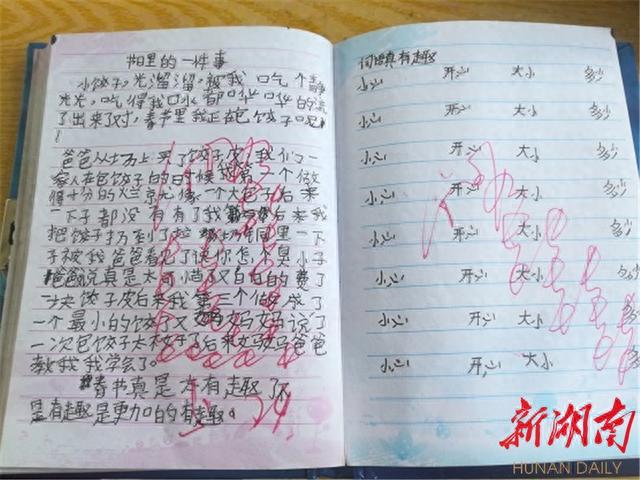 书里的一件事
小饺子,光溜溜,被我口吃个
光光,吃得我口水都哗哗的流
了出来了对,春节里我正在包饺子呢
!
爸爸从市场上买了饺子皮,我们一
家人在包饺子的日时候我第一个做
得十分的像一个大包子后来
一下子都没有有了我后来我
把饺子扔到了垃圾桶里一下
子被我爸爸看见了
爸爸说真是太可惜了又白白的费了
一块饺子皮后来我第三个做成了
一个最小的饺子又妈妈说了
一次包饺子大王了后来妈妈爸爸
教我我学会了。
春节真是太有趣了不
是有趣是更加的有趣。
词语真有趣
小心 开心 大小 多少
小心 开心 大小 多少
小心 开心 大小 多少
小心 开心 大小 多少
小心 开心 大小 多少
小心 开心 大小 多少
小心 开心 大小 多少
小心 开心 大小 多少
新湖南
HUNAN DAILY